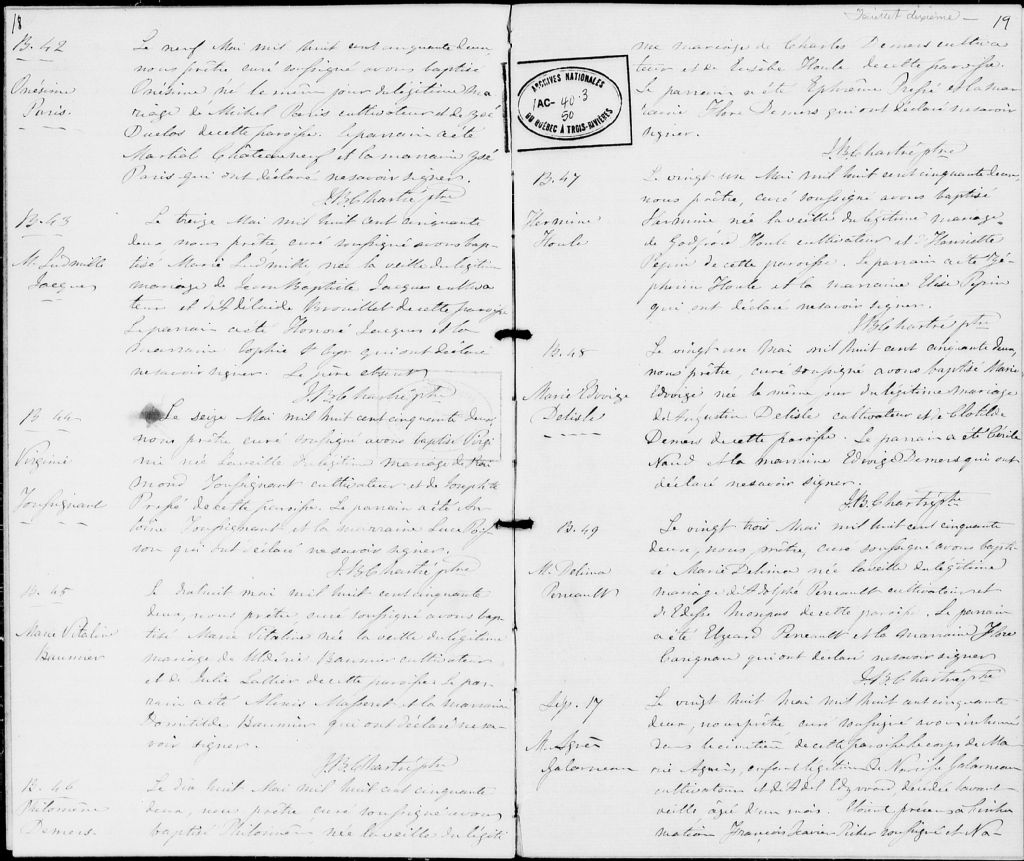 18
B. 42
Onésime
Paris.
Le neuf Mai mil huit cent cinquante deux
nous prêtre curé soussigné avons baptisé
Onésime né le même jour du légitime ma
riage de Michel Paris cultivateur et de Zoé
Duclos de cette paroisse. Le parrain a été
Martial Châteauneuf et la marraine Zoé
Paris qui ont déclaré ne savoir signer.
J.B. Chartré ptre
B. 43
M. Ludmille
Jacques
Le treize Mai mil huit cent cinquante
deux, nous prêtre, curé soussigné avons bap
tisé Marie Ludmille née la veille du légitime
mariage de Jean Baptiste Jacques cultiva
teur et de Adélaide Brouillet de cette paroisse
Le parrain a été Honoré Jacques et la
marraine Sophie St Cyr qui ont déclaré
ne savoir signer. Le père absent
J.B. Chartré ptre
B 44
Virginie
Toussignant
Le seize Mai mil huit cent cinquante deux,
nous prêtre curé soussigné avons baptisé Virgi
nie née la veille du légitime mariage de Rai
mond Toussignant cultivateur et de Josephte
Prefé de cette paroisse. Le parrain a été An
toine Toussignant et la marraine Luce Pois
son qui ont déclaré ne savoir signer.
J.B. Chartré ptre
B. 45
Marie Vitaline
Baumier
Le dixhuit mai mil huit cent cinquante
deux, nous prêtre, curé soussigné avons bap
tisé Marie Vitaline née la veille du légitime
mariage de Uldéric Baumier cultivateur
et de Julie Lallier de cette paroisse Le par
rain a été Alexis Masseret et la marraine
Domitilde Baumier qui ont déclaré ne sa
voir signer.
J.B. Chartré ptre
B. 46
Philomène
Demers.
Le dix huit Mai mil huit cent cinquante
deux, nous prêtre curé soussigné avons
baptisé Philomène née la veille du légiti
Feuillet dixième
19
me mariage de Charles Demers cultiva
teur et de Eusèbe Houle de cette paroisse.
Le parrain a été Ephrème Prefé et la mar
raine Flore Demers qui ont déclaré ne savoir
signer.
J.B. Chartré ptre
ARCHIVES NATIONALES
AC- 40-3
50
DU QUÉBEC À TROIS-RIVIÈRES
B. 47
Hermine
Houle
Le vingt un Mai mil huit cent cinquante deux,
nous prêtre, curé soussigné avons baptisé
Hermine née la veille du légitime mariage
de Godfroid Houle cultivateur et d'Henriette
Pepin de cette paroisse. Le parrain a été Zé
phirin Houle et la marraine Elise Pepin
qui ont déclaré ne savoir signer.
J.B. Chartré ptre
B. 48
Marie Edvige
Delisle
Le vingt un Mai mil huit cent cinquante deux,
nous prêtre, curé soussigné avons baptisé Marie
Edvige née le même jour du légitime mariage
de Augustin Delisle cultivateur et de Clotilde
Demers de cette paroisse. Le parrain a été Cirile
Naud et la marraine Edvige Demers qui ont
déclaré ne savoir signer.
J.B. Chartré ptre
B. 49
M. Delima
Perreault
Le vingt trois Mai mil huit cent cinquante
deux, nous prêtre, curé soussigné avons bapti
sé Marie Delima née la veille du légitime
mariage de Adolphe Perreault cultivateur et
d'Edesse Monpas de cette paroisse. Le parrain
a été Elzeard Perreault et la marraine Flore
Carignan qui ont déclaré ne savoir signer
J.B. Chartré ptre
Sep. 17
M. Agnès
Galarneau
Le vingt huit Mai mil huit cent cinquante
deux, nous prêtre curé soussigné avons inhumé
dans le cimetière de cette paroisse le corps de Ma
rie Agnès, enfant légitime de Narcisse Galarneau
cultivateur et de Adel décédée l'avant
veille, âgé d'un mois. Etaient présens à l'inhu
mation François Xavier Picher soussigné et Na-